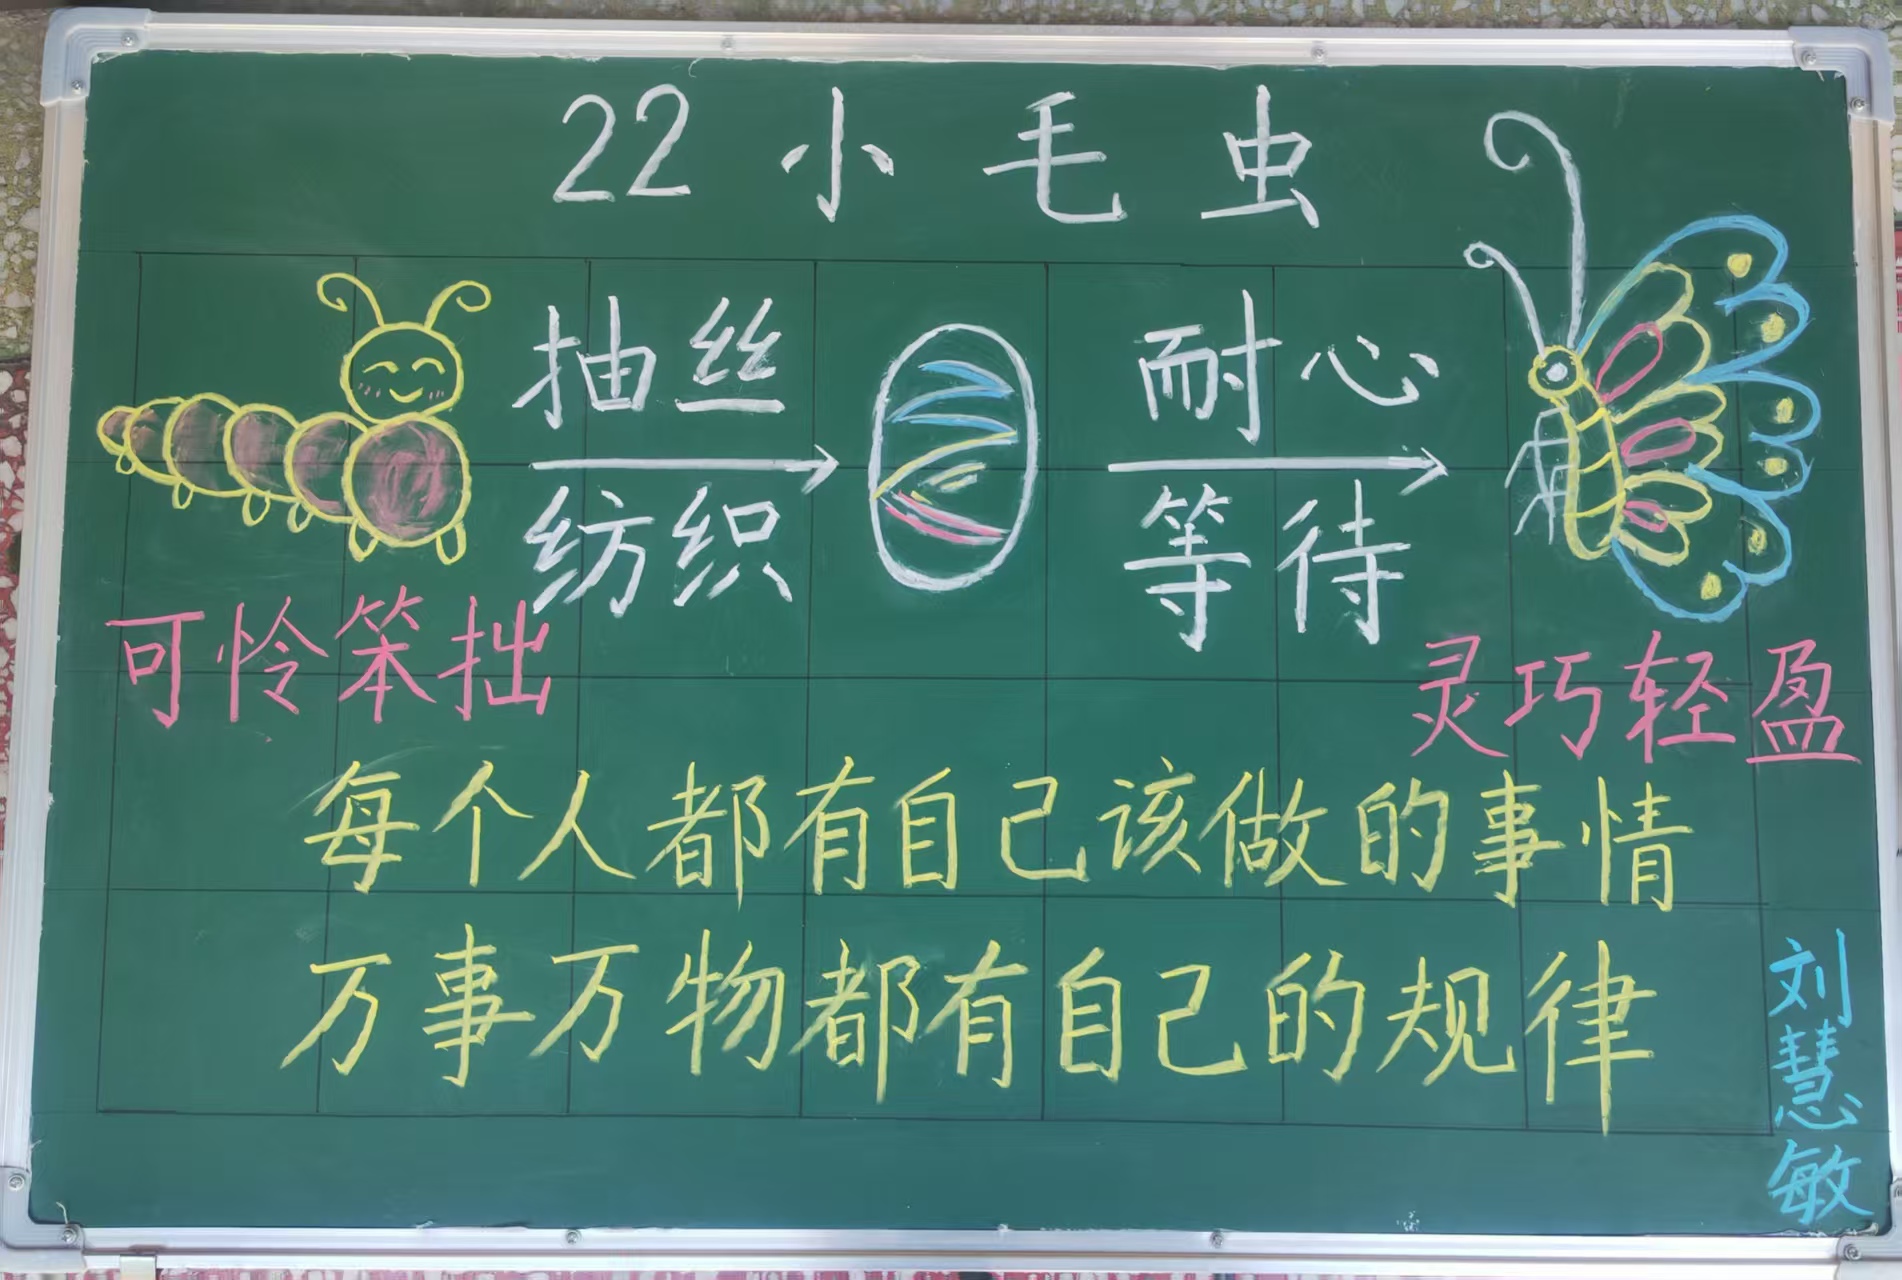 22 小毛虫
抽丝 耐心
纺织 等待
可怜笨拙 灵巧轻盈
每个人都有自己该做的事情
万事万物都有自己的规律
刘慧敏